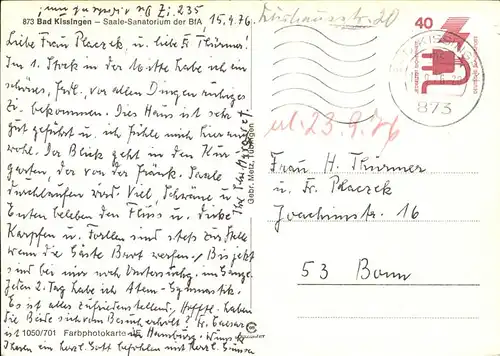 Zi. 235
873 Bad Kissingen – Saale-Sanatorium der BfA 15.9.76
Liebe Frau Placzek, u. liebe Fr. Thürmer!
Im 1. Stock in der Mitte habe ich ein
schönes, frdl., vor allen Dingen ruhiges
Zi. bekommen. Dies Haus ist sehr
gut geführt u. ich fühle mich hier
wohl. Der Blick geht in den Kur
garten, der von der Fränk. Saale
durchlaufen wird. Viel Schwäne u.
Enten beleben den Fluss u. dicke
Karpfen u. Forellen sind stets zur Stelle
wenn die Gäste Brot werfen. Bis jetzt
sind bei mir noch Untersuchg. im Gange.
Jeden 2. Tag habe ich Atem-Gymnastik.
Es ist alles zufriedenstellend. Hofftl. haben
die Beide sich vom Besuch erholt? Fr.
1050/701 Farbphotokarte Hamburg. Wünsche
Ihnen ein herzl. Gott befohlen mit herzl. Grüssen
Ihre
Gebr. Metz, Tübingen
20
40
873
ul. 23.9.76
Frau H. Thürmer
u. Fr. Placzek
Joachimstr. 16
53 Bonn